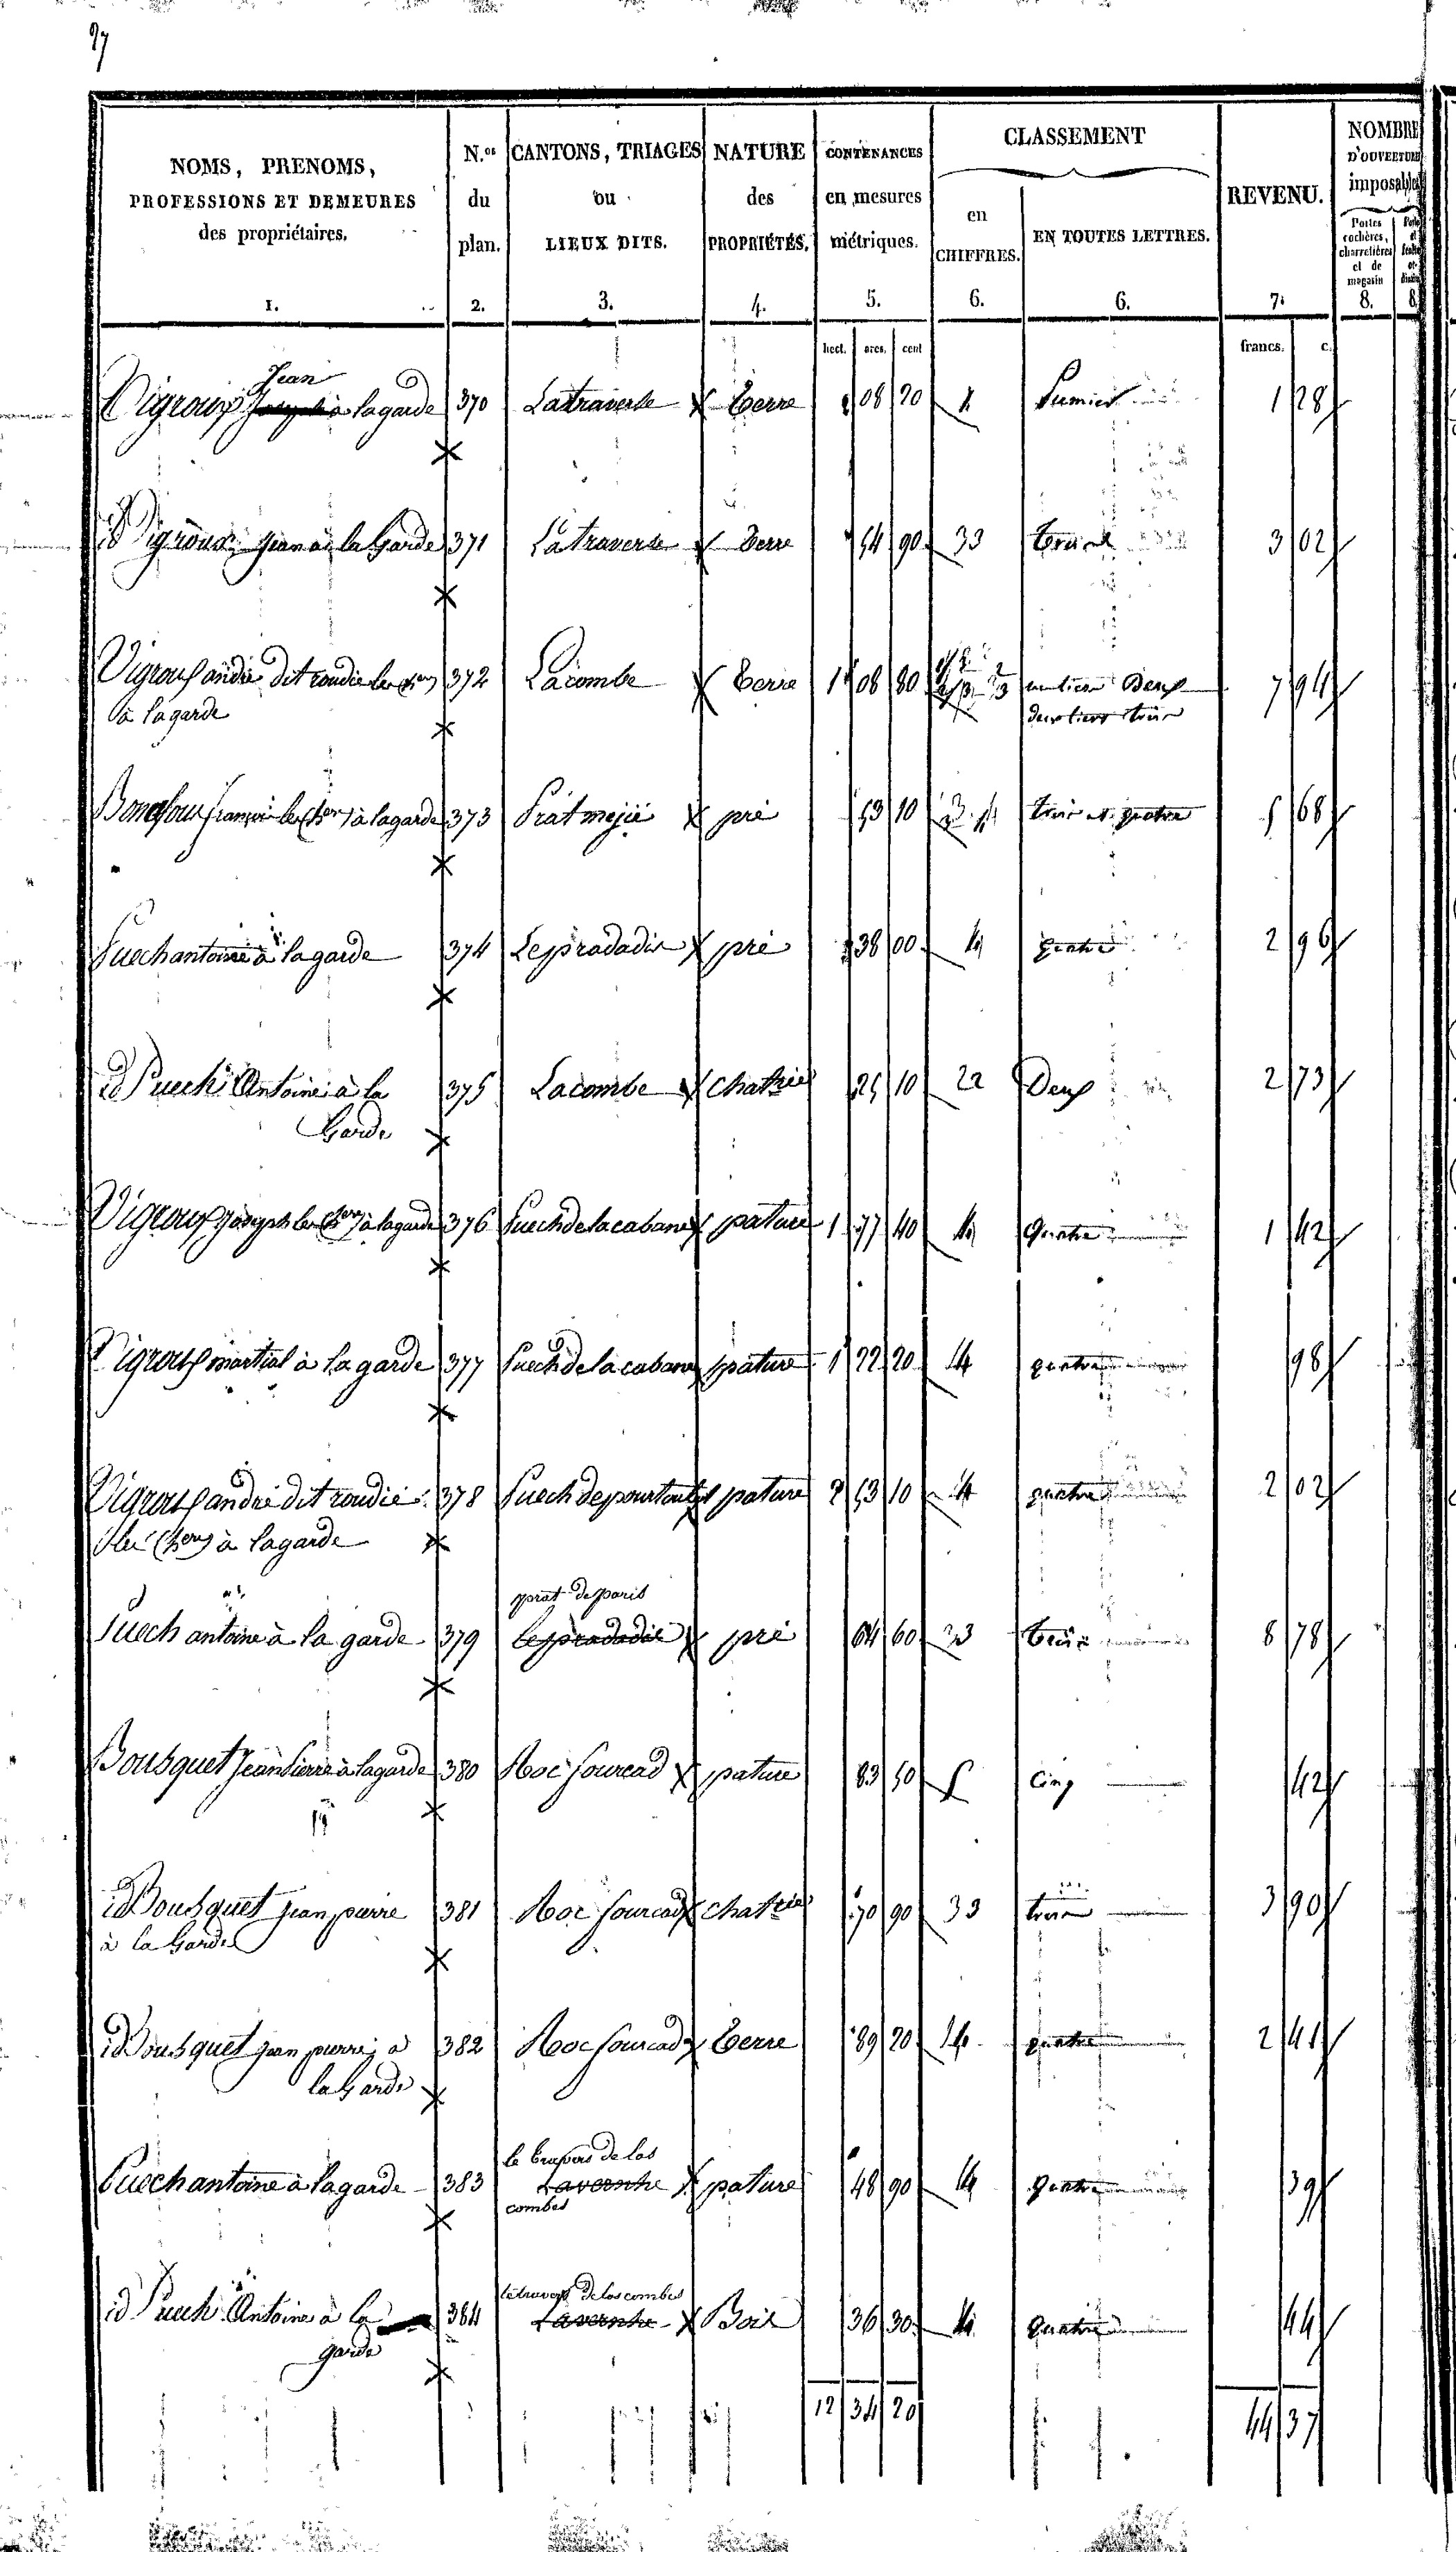 27
NOMS, PRENOMS,
PROFESSIONS ET DEMEURES
des propriétaires.
1.
N.os
du
plan.
2.
CANTONS, TRIAGES
ou
LIEUX DITS.
3.
NATURE
des
PROPRIÉTÉS.
4.
CONTENANCES
en mesures
métriques.
5.
CLASSEMENT
en
CHIFFRES.
6.
EN TOUTES LETTRES.
6.
REVENU.
7.
NOMBRE
D'OUVERTURES
imposables
Portes
cochères,
charretières
et de
magasin
8.
8.
hect. ares. cent francs. c.
Jean
Vigroux à lagarde 370 Latraverse Terre 08 20 1 28
id Vigroux Jean à la Garde 371 La traverse Terre 54 90 33 trois 3 02
Vigroux andré dit roudié 372 Lacombe Terre 1 08 80 un tiers Deux 7 94
à lagarde deux tiers trois
françois à lagarde 373 Prat mejié pré 53 10 3. 4 trois et quatre 5 68
Puech antoine à lagarde 374 Lepradadis pré 38 00 4 quatre 2 96
id Puech Antoine à la 375 Lacombe chat 25 10 22 Deux 2 73
Garde
Vigroux Joseph à lagarde 376 Puech de la cabane pature 1 77 40 4 Quatre 1 42
Vigroux martial à la garde 377 Puech de la cabane pature 1 22 20 4 quatre 98
Vigroux andré dit roudié 378 Puech pature 2 53 10 4 quatre 2 02
à lagarde
prat de paris
Puech antoine à la garde 379 lepradadis pré 64 60 33 trois 8 78
Bousquet Jean Pierre à lagarde 380 Roc fourcad pature 83 50 5 Cinq 42
id Bousquet jean pierre 381 Roc fourcad chat 70 90 33 trois 3 90
à la Garde
id Bousquet jean pierre à 382 Roc fourcad Terre 89 20 4 quatre 2 41
la Garde
le de las
Puech antoine à lagarde 383 pature 48 90 4 Quatre 39
combes
le travers de las combes
id Puech Antoine à la 384 Bois 36 30 4 Quatre 44
garde
12 34 20 44 37